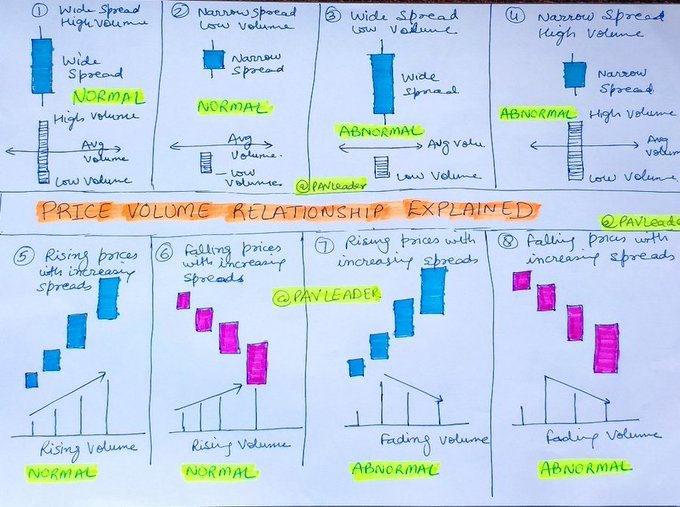 ① Wide Spread
High Volume
Wide
Spread
NORMAL
High Volume
Avg
Volume
Low Volume
② Narrow Spread
Low Volume
Narrow
Spread
NORMAL
Avg
Volume.
Low
Volume.
③ Wide Spread
Low Volume
Wide
Spread
ABNORMAL
Avg Volu
Low Volume
@PAVLeader
④ Narrow Spread
High Volume
Narrow
Spread
ABNORMAL
High Volume
Avg
Volum
Low Volume
PRICE VOLUME RELATIONSHIP EXPLAINED
@PAVLeade
⑤ Rising prices
with increasing
spreads
Rising Volume
NORMAL
⑥ Falling prices
with increasing
spreads
Rising Volume
NORMAL
@PAVLEADER
⑦ Rising prices with
increasing spreads
Fading Volume
ABNORMAL
⑧ Falling prices with
increasing spreads
Fading Volume
ABNORMAL